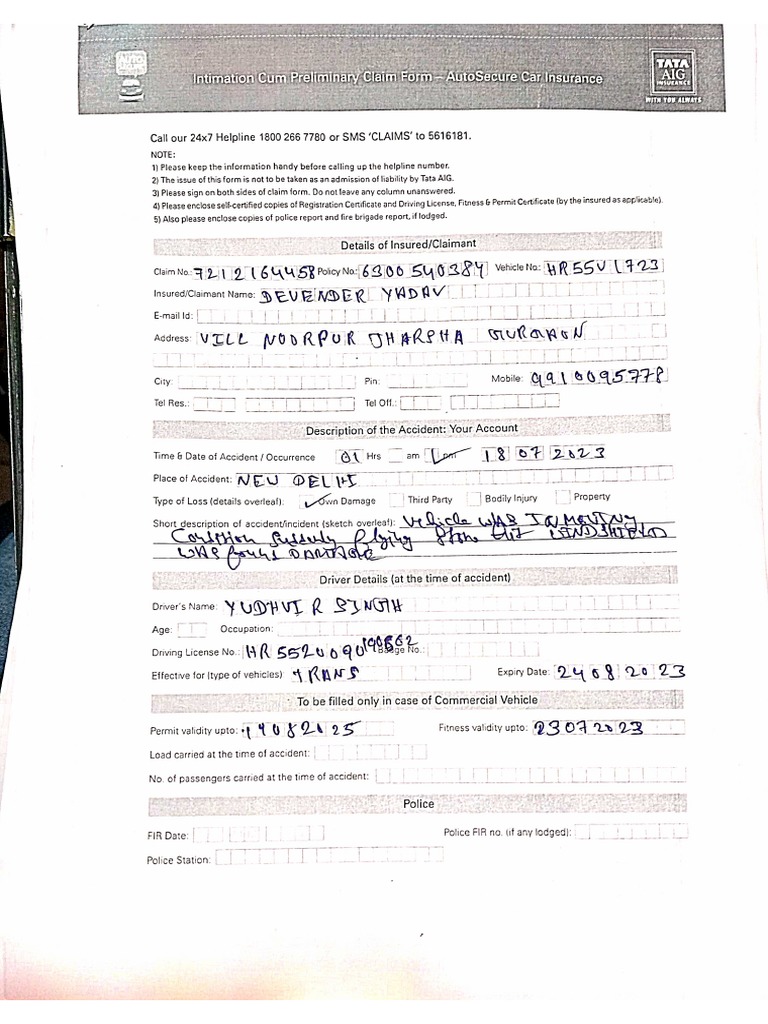 AUTO SECURE
Intimation Cum Preliminary Claim Form – AutoSecure Car Insurance
TATA
AIG
INSURANCE
WITH YOU ALWAYS
Call our 24x7 Helpline 1800 266 7780 or SMS 'CLAIMS' to 5616181.
NOTE:
1) Please keep the information handy before calling up the helpline number.
2) The issue of this form is not to be taken as an admission of liability by Tata AIG.
3) Please sign on both sides of claim form. Do not leave any column unanswered.
4) Please enclose self-certified copies of Registration Certificate and Driving License, Fitness & Permit Certificate (by the insured as applicable).
5) Also please enclose copies of police report and fire brigade report, if lodged.
Details of Insured/Claimant
Claim No.: 7212164458 Policy No.: 6300540384 Vehicle No.: HR55V1723
Insured/Claimant Name: DEVENDER YADAV
E-mail Id:
Address: VILL NOORPUR JHARSHA GURGAON
City: Pin: Mobile: 9910095778
Tel Res.: Tel Off.:
Description of the Accident: Your Account
Time & Date of Accident / Occurrence 01 Hrs am pm 18 07 2023
Place of Accident: NEW DELHI
Type of Loss (details overleaf): Own Damage Third Party Bodily Injury Property
Short description of accident/incident (sketch overleaf): Vehicle WAS IN MOVING
Condition Suddenly flying Stone Hit WINDSHIELD
WAS found DAMAGE
Driver Details (at the time of accident)
Driver's Name: YUDHVIR SINGH
Age: Occupation:
Driving License No.: HR5520090190862 Badge No.:
Effective for (type of vehicles) TRANS Expiry Date: 24082023
To be filled only in case of Commercial Vehicle
Permit validity upto: 19082025 Fitness validity upto: 23072023
Load carried at the time of accident:
No. of passengers carried at the time of accident:
Police
FIR Date: Police FIR no. (if any lodged):
Police Station: